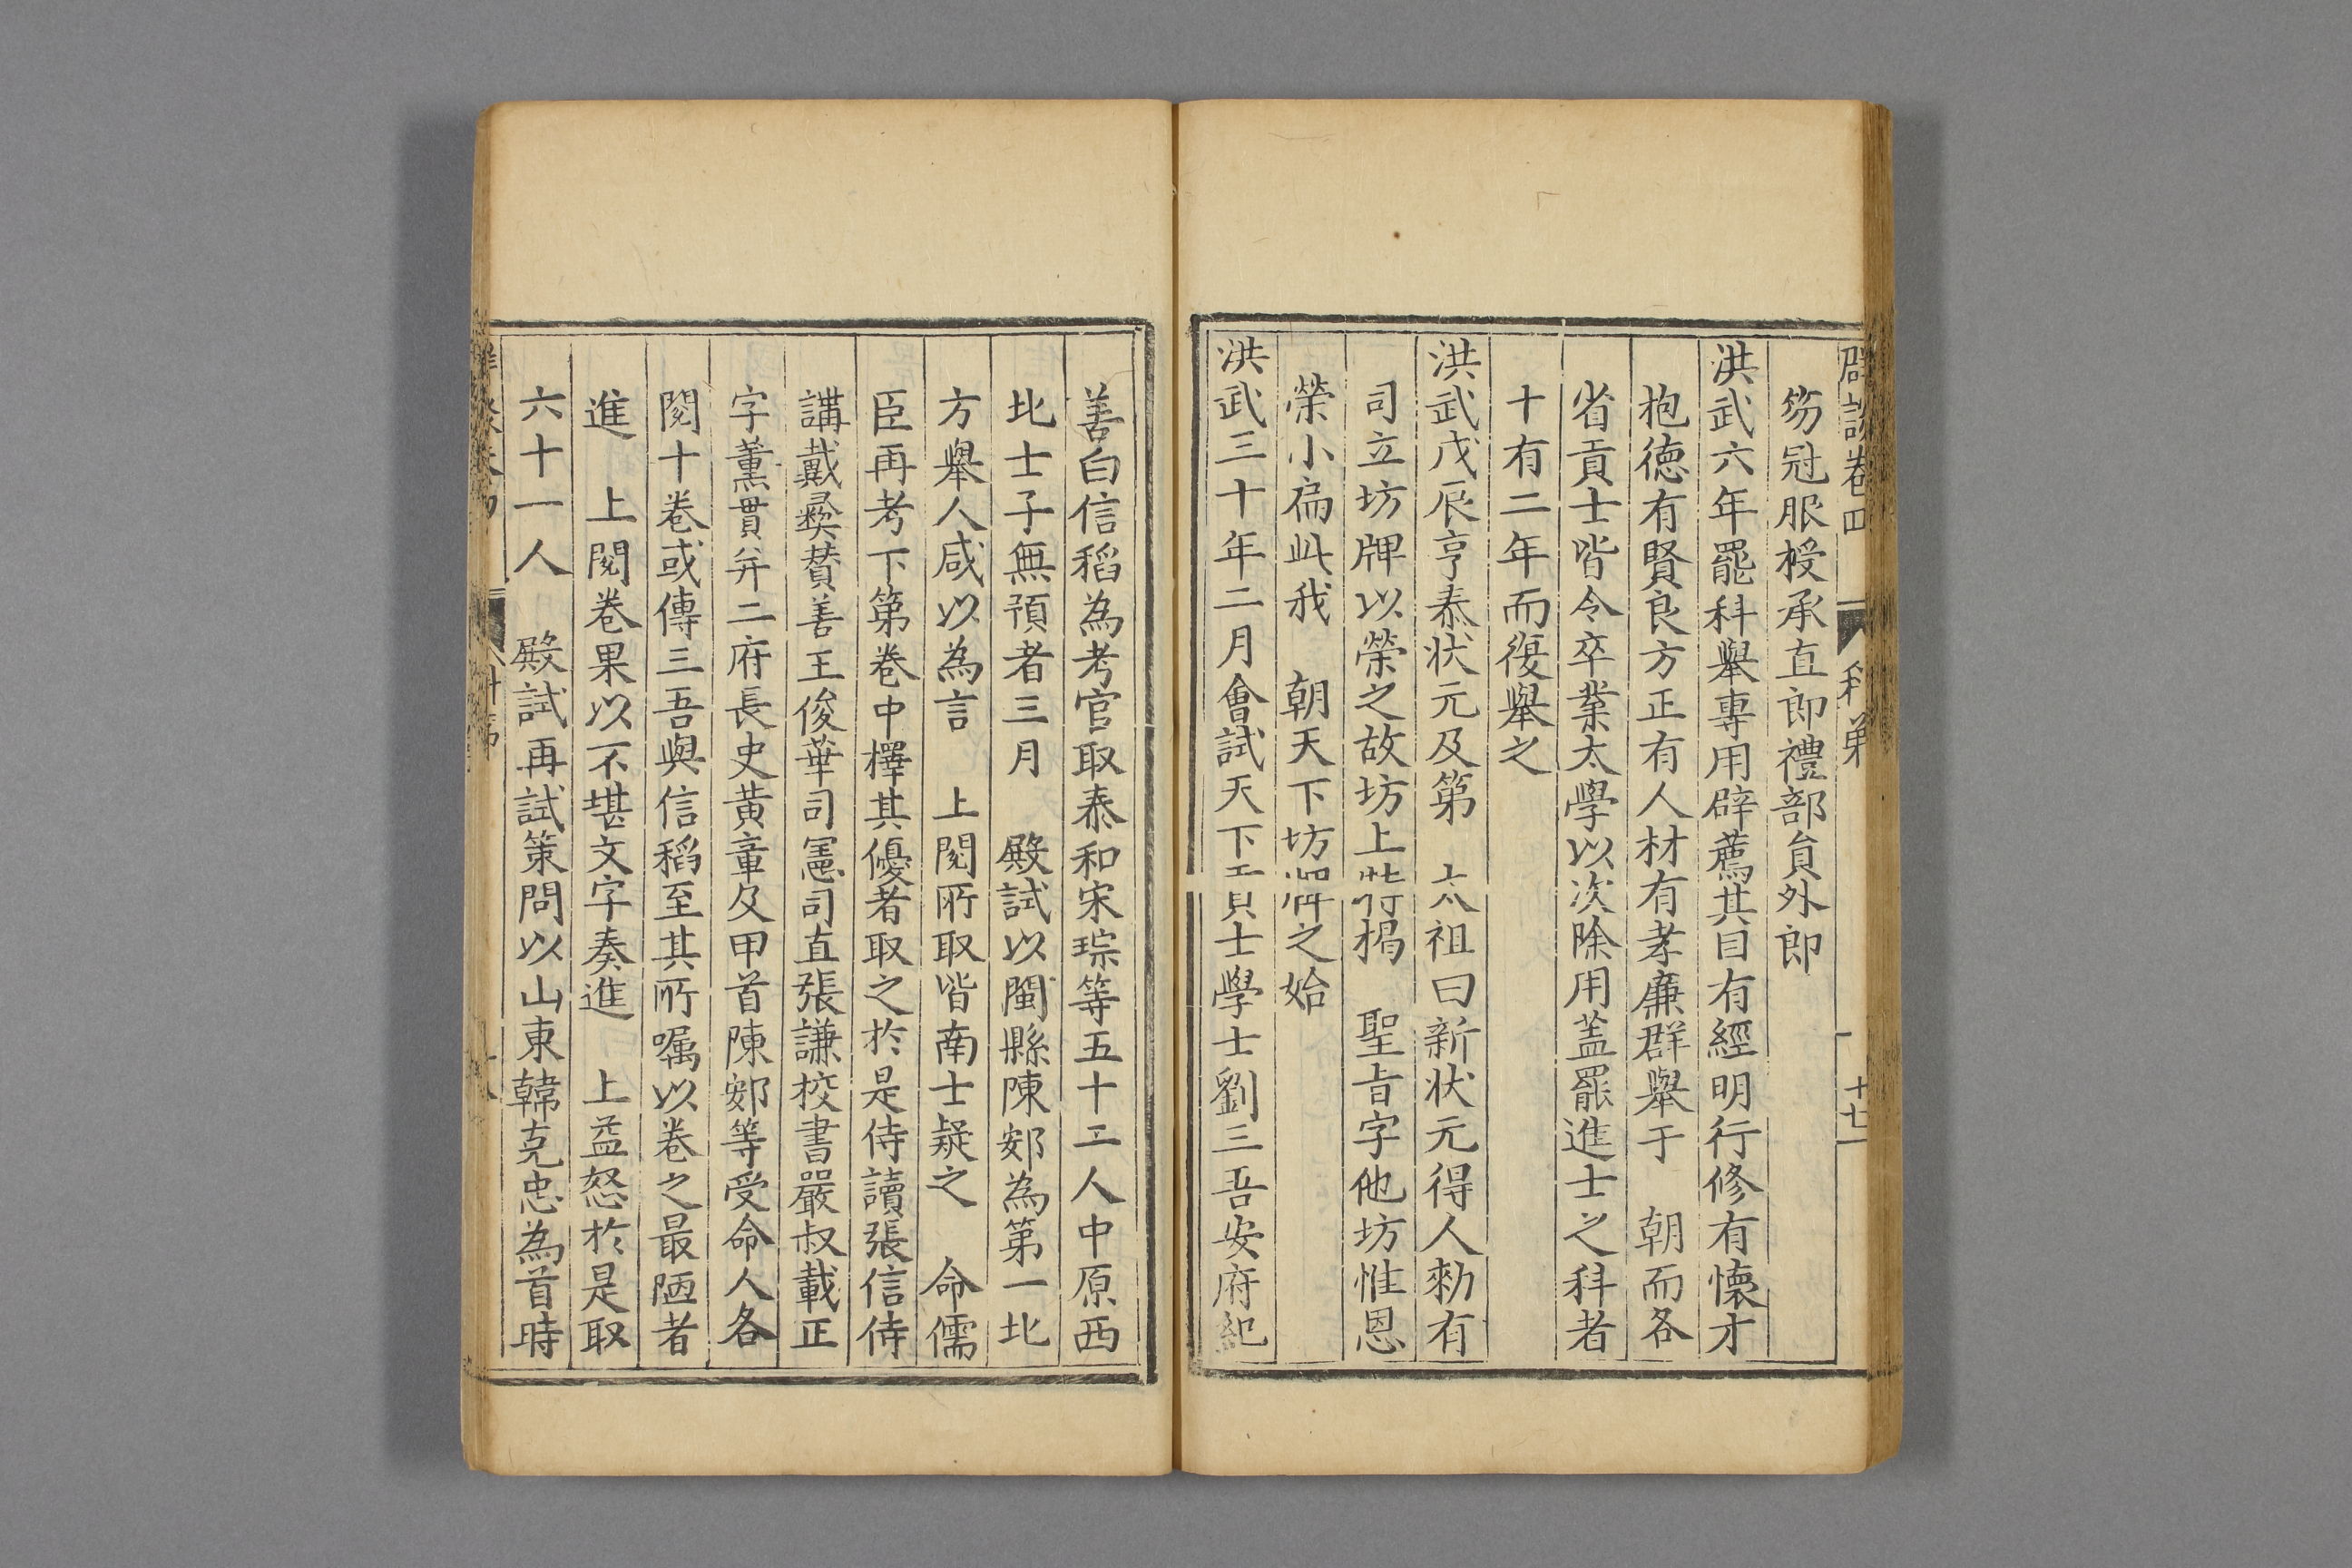 卷四
科第
十七
笏冠服授承直郎禮部員外郎
洪武六年罷科舉專用辟薦其曰有經明行修有懷才
抱德有賢良方正有人材有孝廉群舉于　朝而各
省貢士皆令卒業太學以次除用盖罷進士之科者
十有二年而復舉之
洪武戊辰亨泰状元及第　太祖曰新状元得人勑有
司立坊牌以榮之故坊上特楬　聖旨字他坊惟恩
榮小扁此我　朝天下坊牌之始
洪武三十年二月會試天下貢士學士劉三吾安府紀
善白信稻為考官取泰和宋琮等五十二人中原西
北士子無預者三月　殿試以閩縣陳䢿為第一北
方舉人咸以為言　上閱所取皆南士疑之　命儒
臣再考下第卷中擇其優者取之於是侍讀張信侍
講戴彝賛善王俊華司憲司直張謙校書嚴叔載正
字董貫并二府長史黄章及甲首陳䢿等受命人各
閱十卷或傳三吾與信稻至其所嘱以卷之最陋者
進　上閱卷果以不堪文字奏進　上益怒於是取
六十一人　殿試再試策問以山東韓克忠為首時